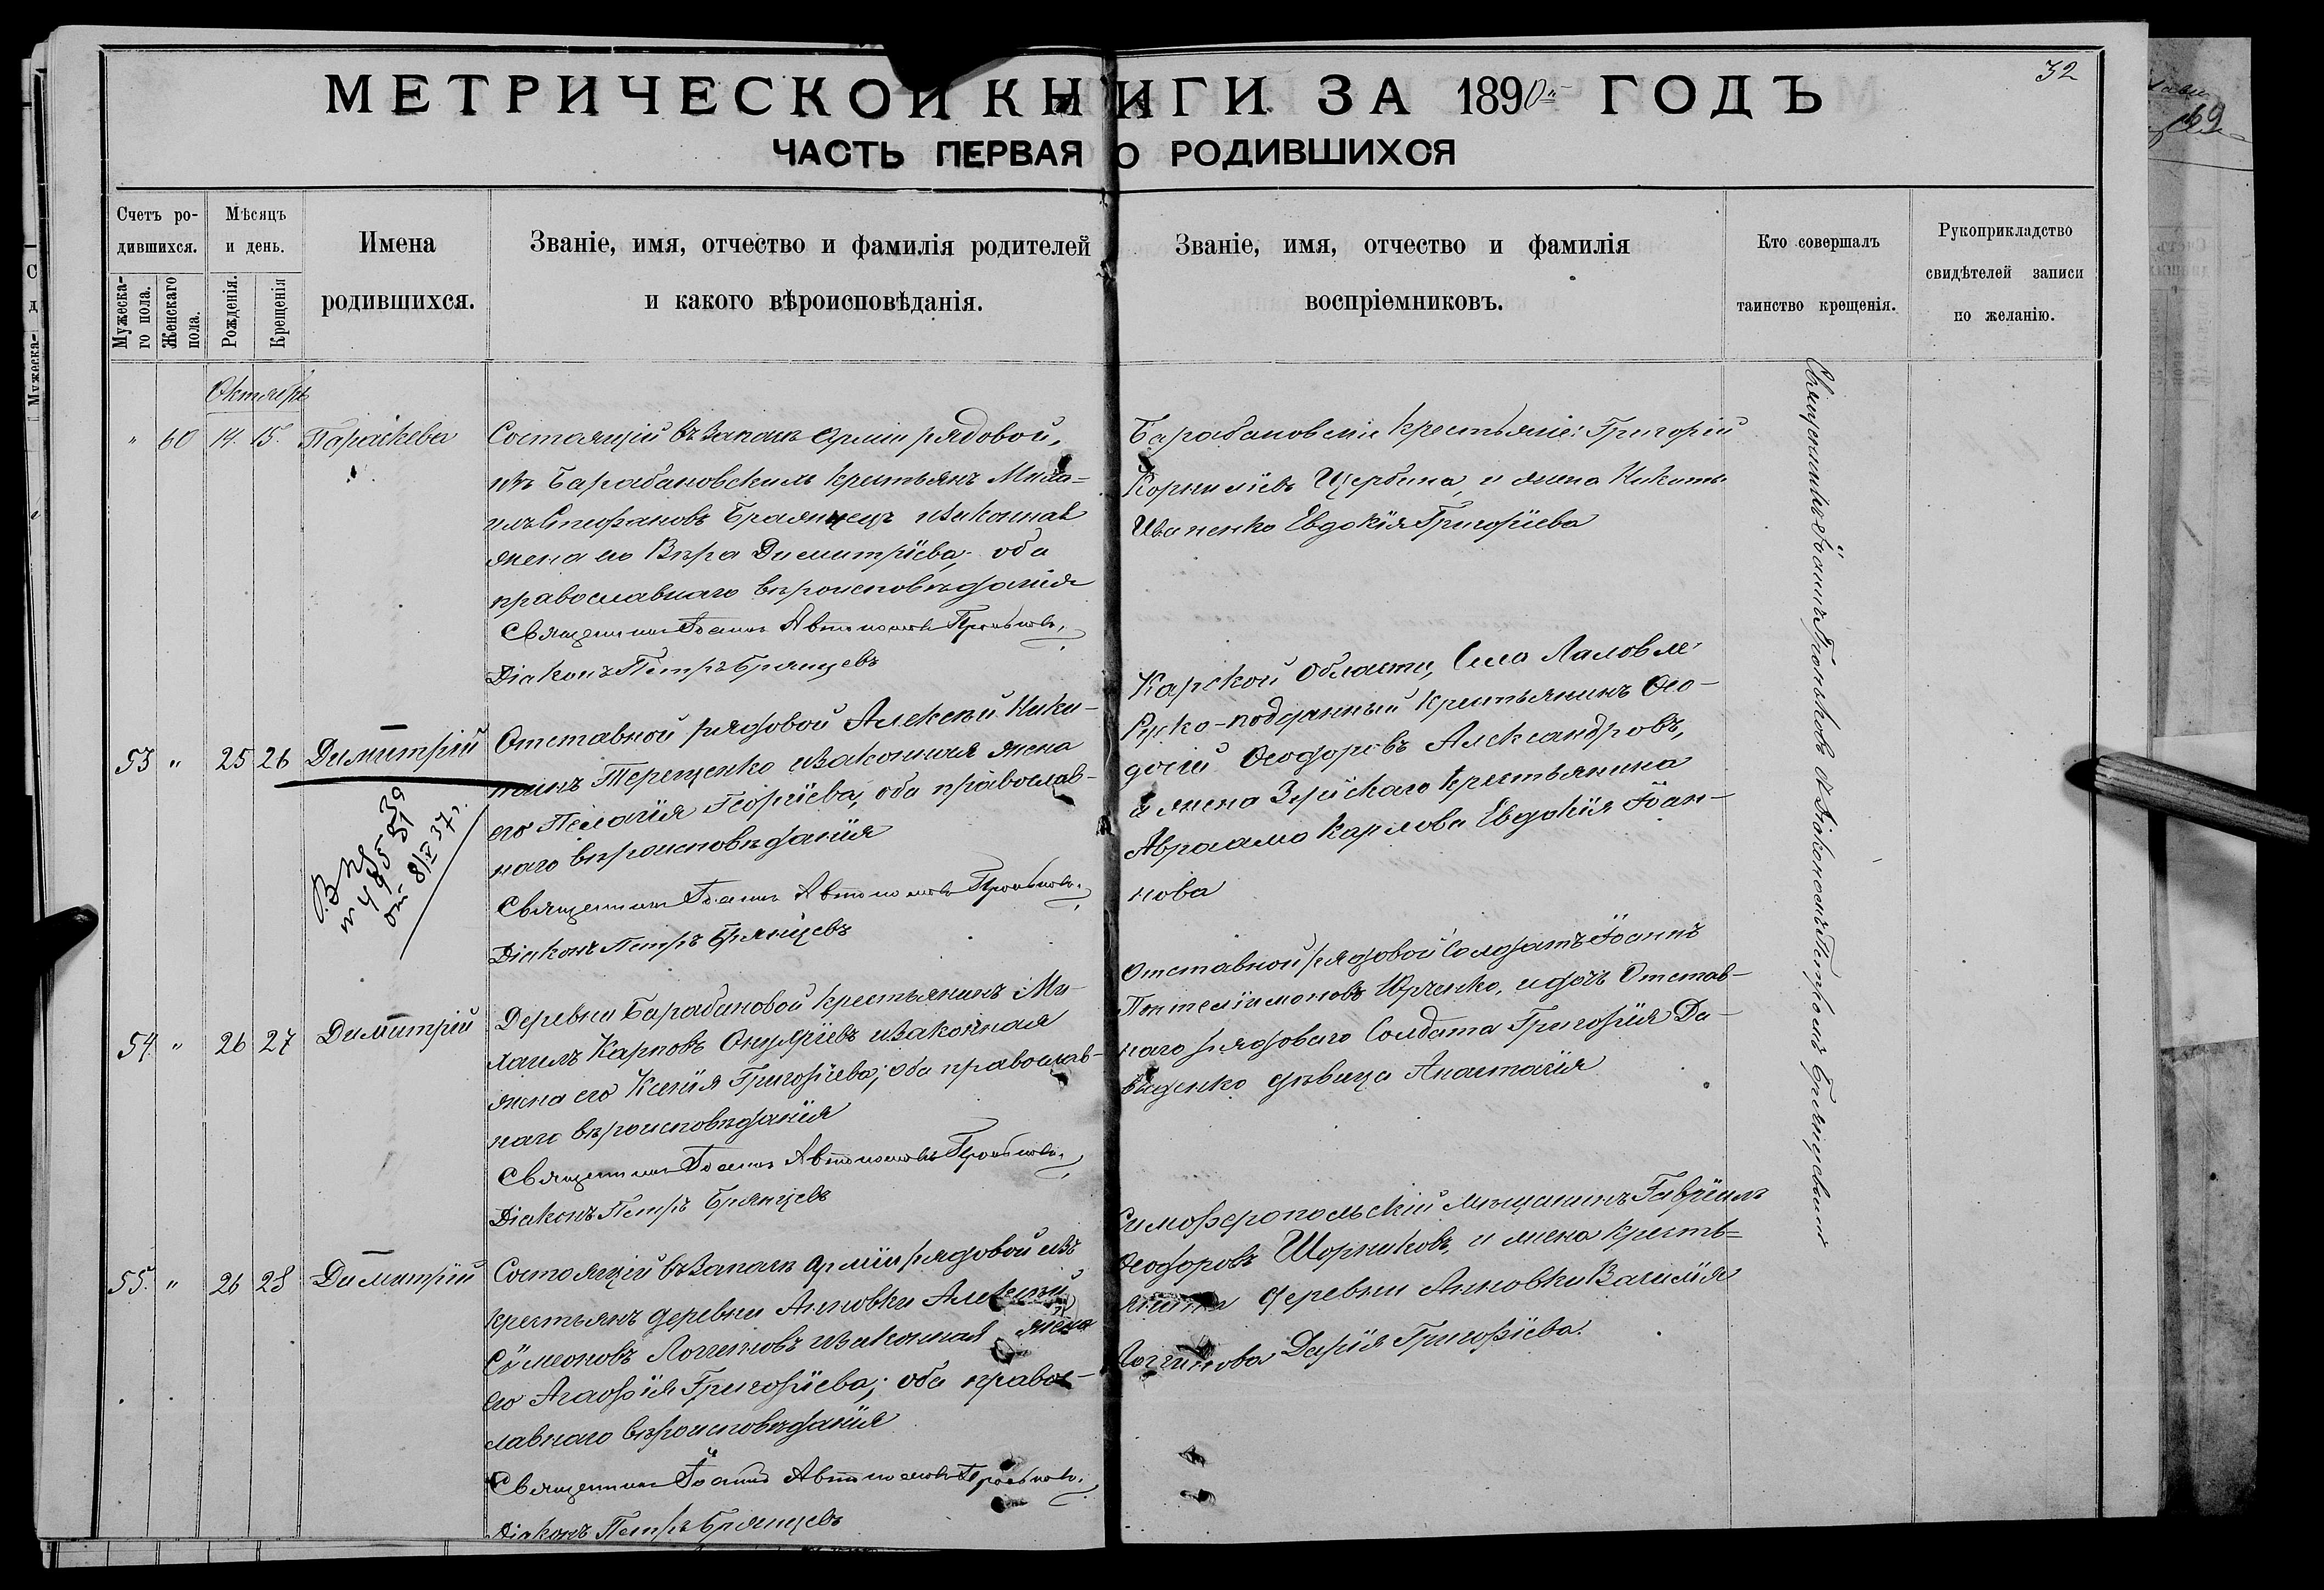 32
МЕТРИЧЕСКОЙ КНИГИ ЗА 1890й ГОДЪ
ЧАСТЬ ПЕРВАЯ О РОДИВШИХСЯ
Счетъ ро-
дившихся.
Мужеска-
го пола.
Женскаго
пола.
Мѣсяцъ
и день.
Рожденія.
Крещенія
Имена
родившихся.
Званіе, имя, отчество и фамилія родителей
и какого вѣроисповѣданія.
Званіе, имя, отчество и фамилія
воспріемниковъ.
Кто совершалъ
таинство крещенія.
Рукоприкладство
свидѣтелей записи
по желанію.
Октябрь
" 60 14. 15. Параскева
Состоящій въ запасѣ арміи рядовой,
изъ Барабановскихъ крестьянъ Миха=
илъ Стефановъ и законная
жена его Вѣра Димитріева; оба
православнаго вѣроисповѣданія
Священникъ Іоаннъ Автономовъ
Діаконъ Петръ Брянцевъ
Барабановскіе крестьяне: Григорій
Корниліевъ Щербина, и жена Никиты
Иваненко Евдокія Григоріева
53 " 25 26 Димитрій
№ 495
от 8/V 37 г.
Отставной рядовой Алексѣй Ники-
Терещенко и законная жена
его Пелагія Георгіева; оба православ-
наго вѣроисповѣданія
Священникъ Іоаннъ Автономовъ
Діаконъ Петръ Брянцевъ
Карской области, Села
Руско-подданный крестьянинъ Ѳео-
досій Ѳеодоровъ Александровъ,
и жена крестьянина
Авраама Карлова Евдокія Іоан-
нова
54 " 26 27 Димитрій
Деревни Барабановой крестьянинъ Ми-
хаилъ Карповъ Онуфріевъ и законная
жена его Ксенія Григоріева; оба православ-
наго вѣроисповѣданія
Священникъ Іоаннъ Автономовъ
Діаконъ Петръ Брянцевъ
Отставной рядовой Солдатъ Іоаннъ
Пантелеимоновъ Юрченко, и дочь Отстав-
наго рядоваго Солдата Григорія Да-
виденко дѣвица Анастасія
55. " 26 28 Димитрій
Состоящій въ запасѣ арміи рядовой изъ
крестьянъ деревни Анновки Алексѣй
Сѵмеоновъ Логгиновъ и законная жена
его Агафія Григоріева; оба правос-
лавнаго вѣроисповѣданія
Священникъ Іоаннъ Автономовъ
Діаконъ Петръ Брянцевъ
Симферопольскій мѣщанинъ Гавріилъ
Ѳеодоровъ Шорниковъ, и жена кресть=
янина деревни Анновки Василія
Логгинова Дарія Григоріева.
Священникъ Іоаннъ съ Діакономъ Петромъ Брянцевымъ
69